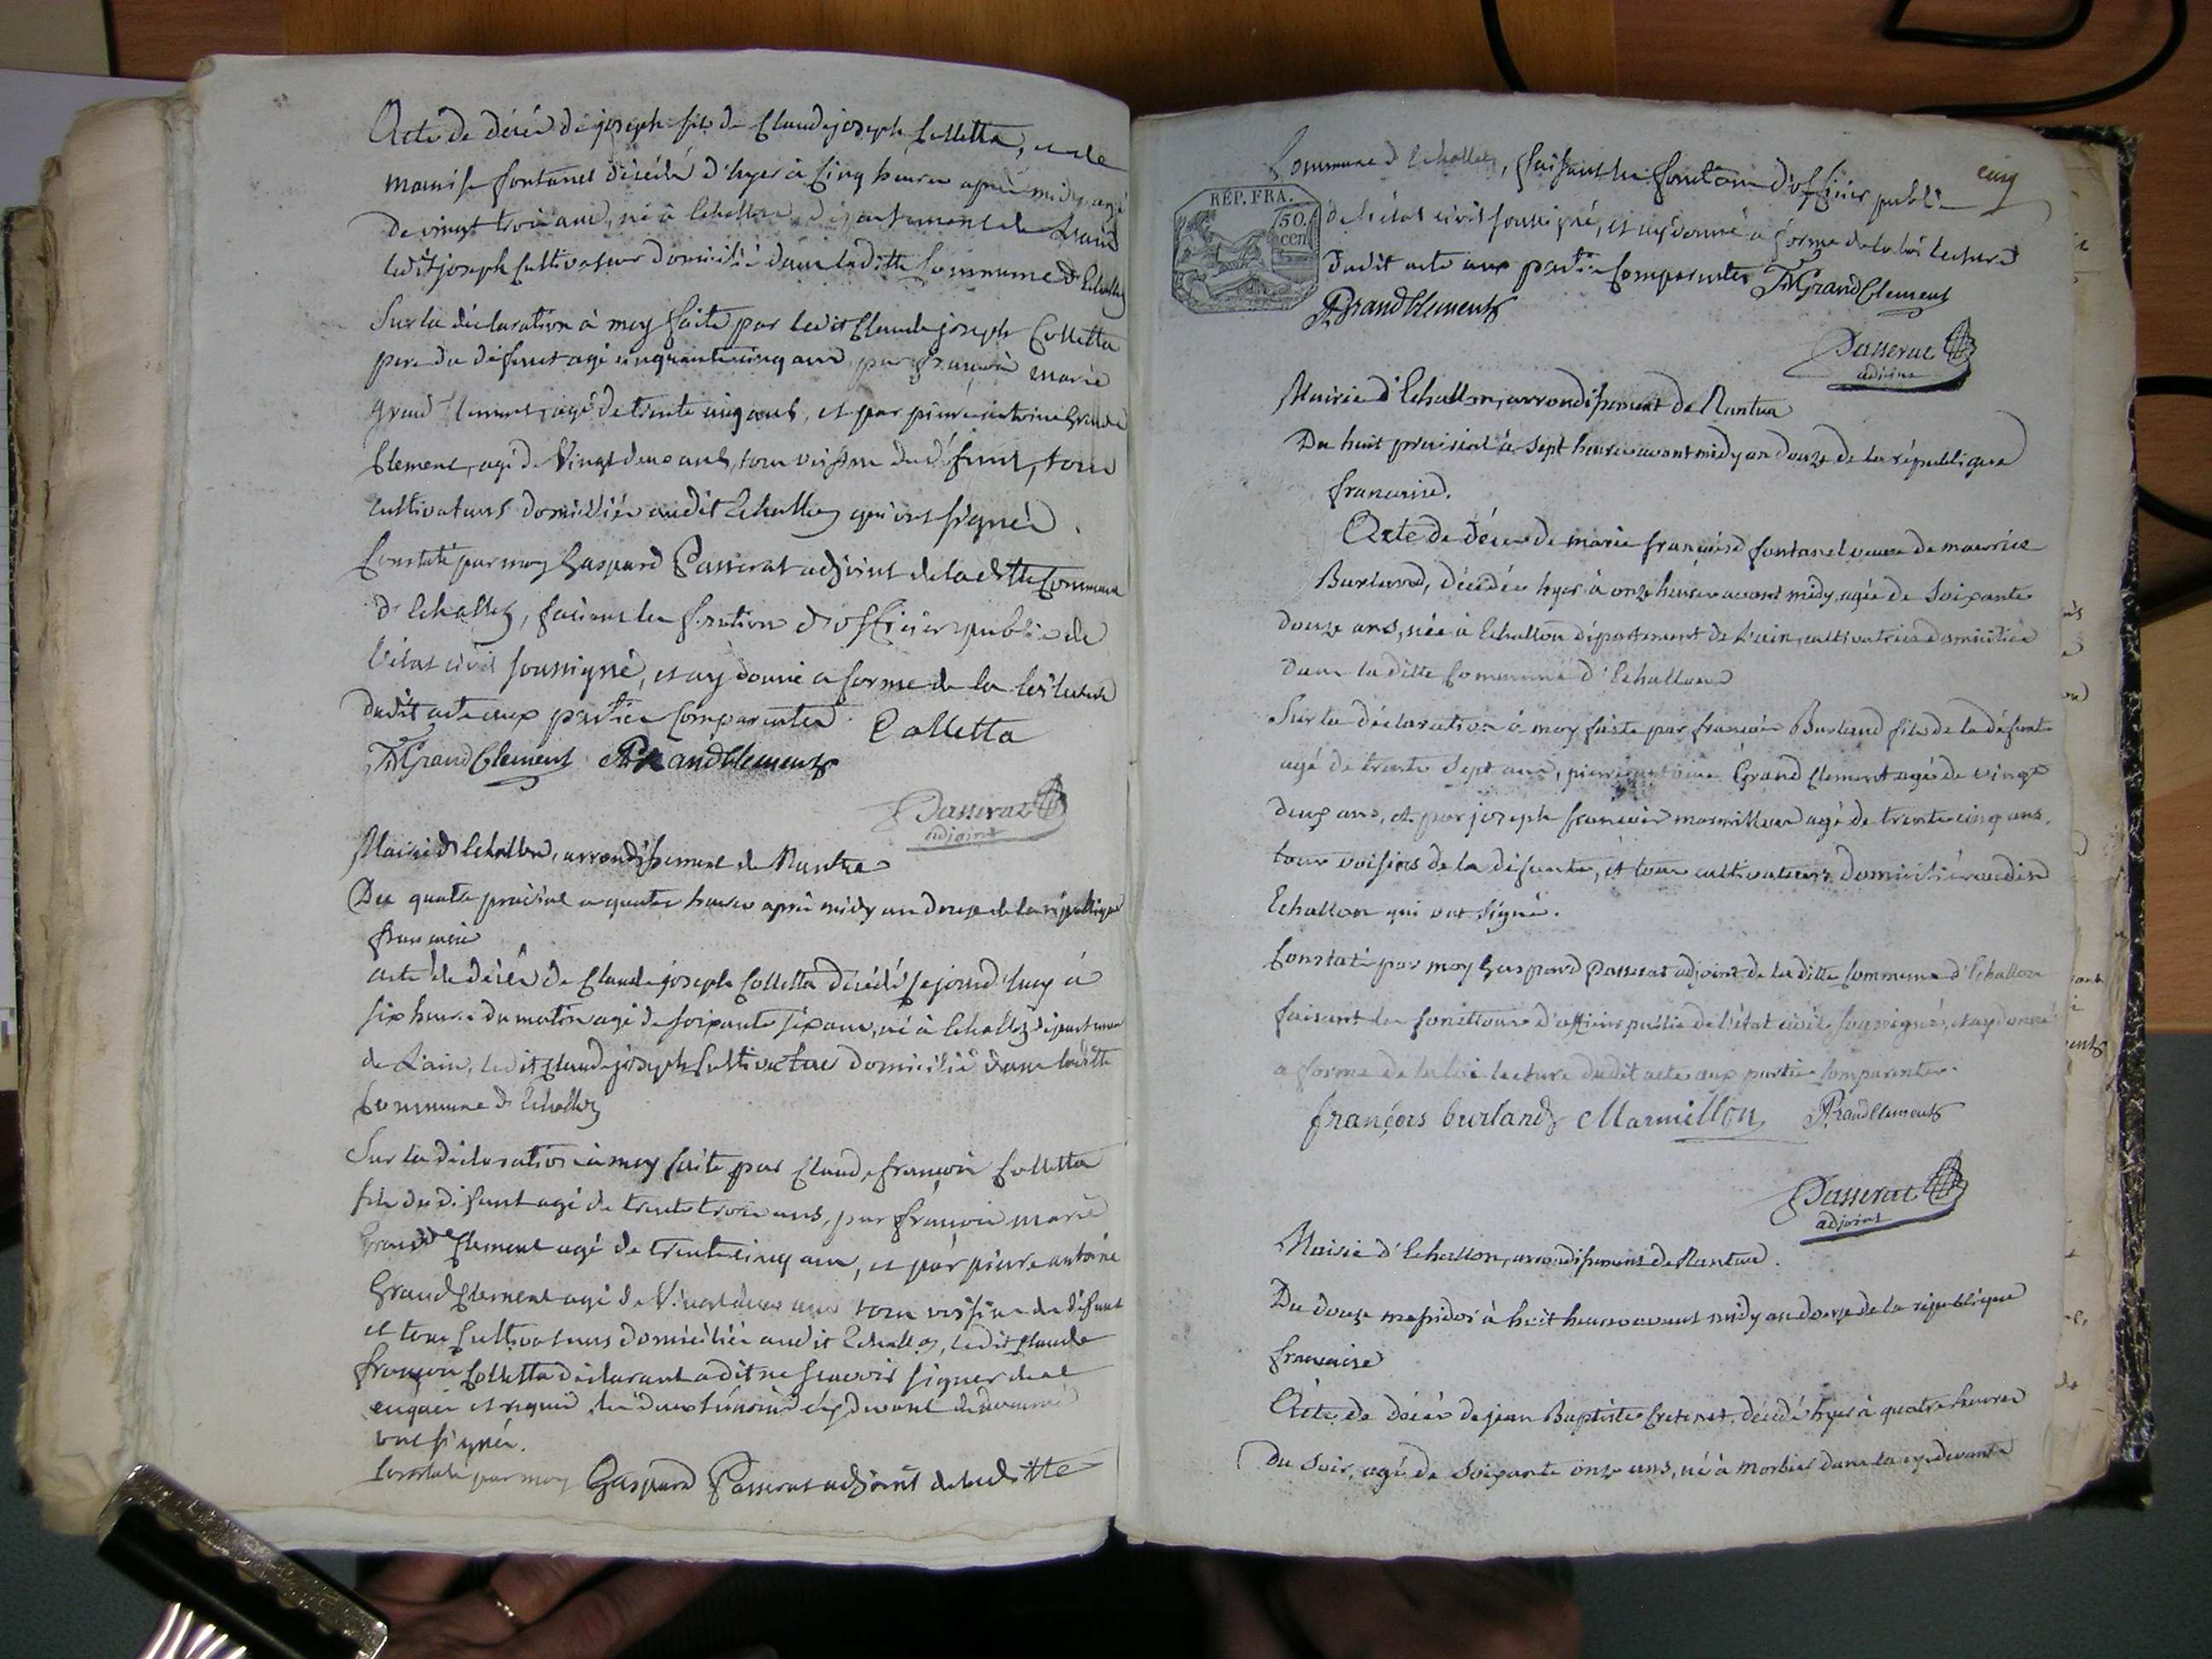 Acte de décès de joseph fils de Claude joseph Colletta, et de
fontanel décédé d'hyer à Cinq heures après midy, agé
de vingt trois ans, né à Echallon, département de L'ain
ledit joseph Cultivateur domicilié dans la ditte Commune d'Echallon
Sur la déclaration à moy faite par ledit Claude joseph Colletta
pere du défunt agé cinquante cinq ans, par françois marie
grand Clement, agé de trente cinq ans, et par pierre antoine Grand
Clement, agé de Vingt deux ans, tous voisins du défunt, tous
cultivateurs domiciliés audit Echallon qui ont signés.
Constaté par moy Gaspard Passerat adjoint de la ditte Commune
d'Echallon, faisant les fonction d'officier public de
l'état civil soussigné, et ay donné a forme de la loi lecture
dudit acte aux parties Comparentes. Colletta
FMGrandClement PAGrandClement
Passerat
adjoint
Mairie d'Echallon, arrondissement de Nantua
Du quatre prairial a quatre heures après midy an douze de la république
françoise
acte de décès de Claude joseph Colletta décédé ce jourd'huy à
six heures du matin agé de soixante six ans, né à Echallon département
de L'ain, ledit Claude joseph Cultivateur domicilié dans laditte
Commune d'Echallon
Sur la déclaration à moy faite par Claude françois Colletta
fils du défunt agé de trente trois ans, par françois marie
Grand Clement agé de trente cinq ans, et par pierre antoine
Grand Clement agé de Vingt deux ans tous voisins du défunt
et tous Cultivateurs domiciliés audit Echallon, ledit Claude
françois Colletta déclarant a dit ne sçavoir signer de ce
enquis et requis les deux témoins cy devant dénommés
ont signés.
Constaté par moy Gaspard Passerat adjoint de laditte
cinq
Commune d'Echallon, faisant les fonctions d'officier public
RÉP. FRA.
50.
cen
de l'état civil soussigné, et ay donné a forme de la loi lecture
dudit acte aux parties Comparentes FMGrandClement
PAGrandClement
Passerat
adjoint
Mairie d'Echallon, arrondissement de Nantua
Du huit prairial à sept heures avant midy an douze de la république
francaise.
Acte de décès de marie françoise fontanel veuve de maurice
Burland, décédée hyer à onze heures avant midy, agée de soixante
douze ans, née à Echallon département de l'ain, cultivatrice domiciliée
dans la ditte Commune d'Echallon
Sur la déclaration à moy faite par françois Burland fils de la défunte
agé de trente sept ans, pierre antoine Grand Clement agé de vingt
deux ans, et par joseph françois marmillon agé de trente cinq ans,
tous voisins de la défunte, et tous cultivateurs domiciliés audit
Echallon qui ont signé.
Constaté par moy Gaspard Passerat adjoint de la ditte Commune d'Echallon
faisant les fonctions d'officier public de l'état civil soussigné, et ay donné
a forme de la loi lecture dudit acte aux parties Comparentes.
françois burland Marmillon PAGrandClement
Passerat
adjoint
Mairie d'Echallon, arrondissement de Nantua.
Du douze messidor à huit heures avant midy an douze de la république
francaise
Acte de décès de jean Baptiste Cretenet, décédé hyer à quatre heures
du soir, agé de soixante onze ans, né à morbier dans la cy devant